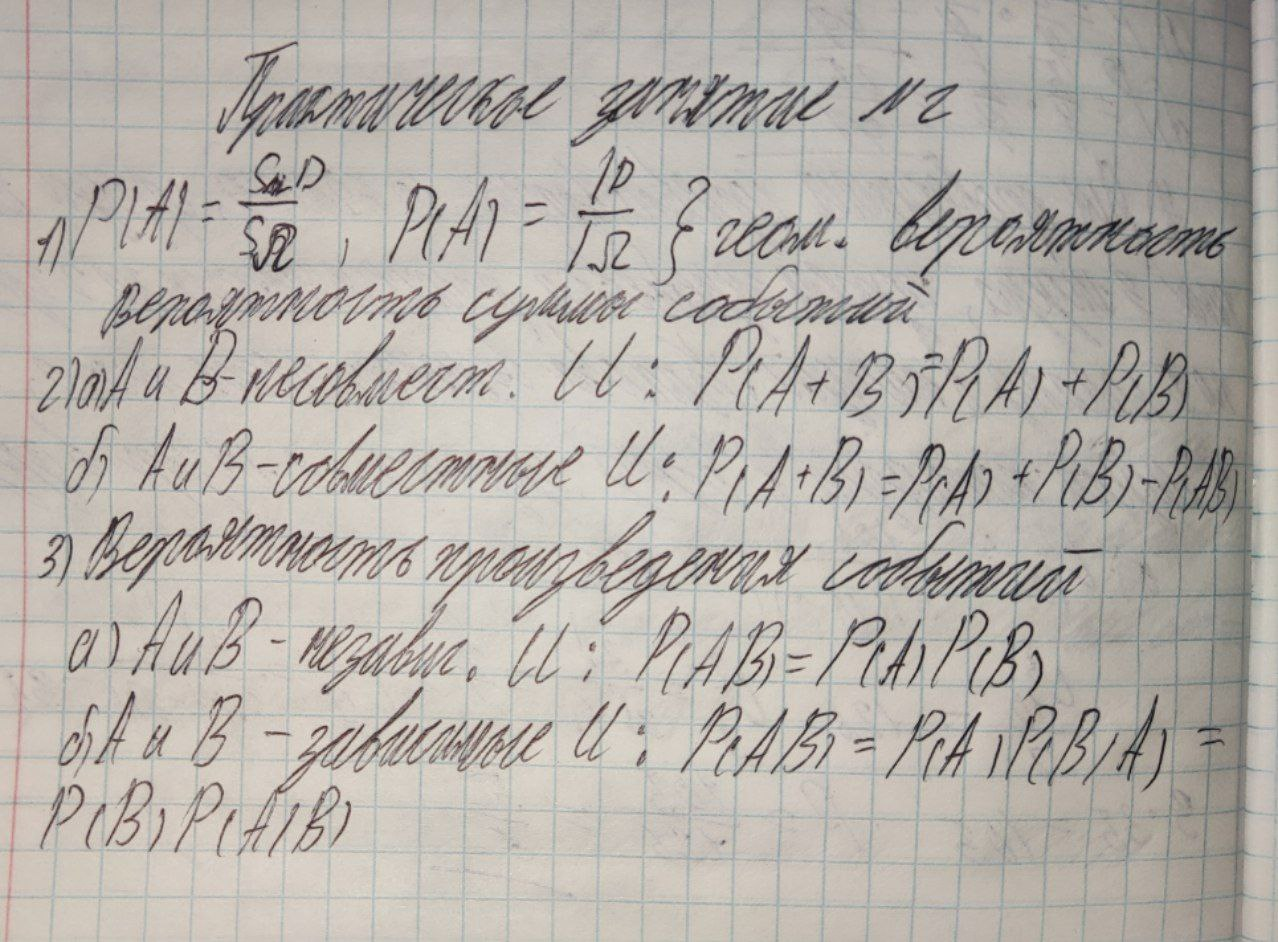 Практическое занятие №2
1) P(A) = S D / S Ω , P(A) = l D / l Ω } геом. вероятность
Вероятность суммы событий
2) а) A и B - несовмест. И : P(A + B) = P(A) + P(B)
б) A и B - совместные И : P(A + B) = P(A) + P(B) - P(AB)
3) Вероятность произведения событий
а) A и B - независ. И : P(AB) = P(A) P(B)
б) A и B - зависимые И : P(AB) = P(A) P(B/A) =
P(B) P(A/B)